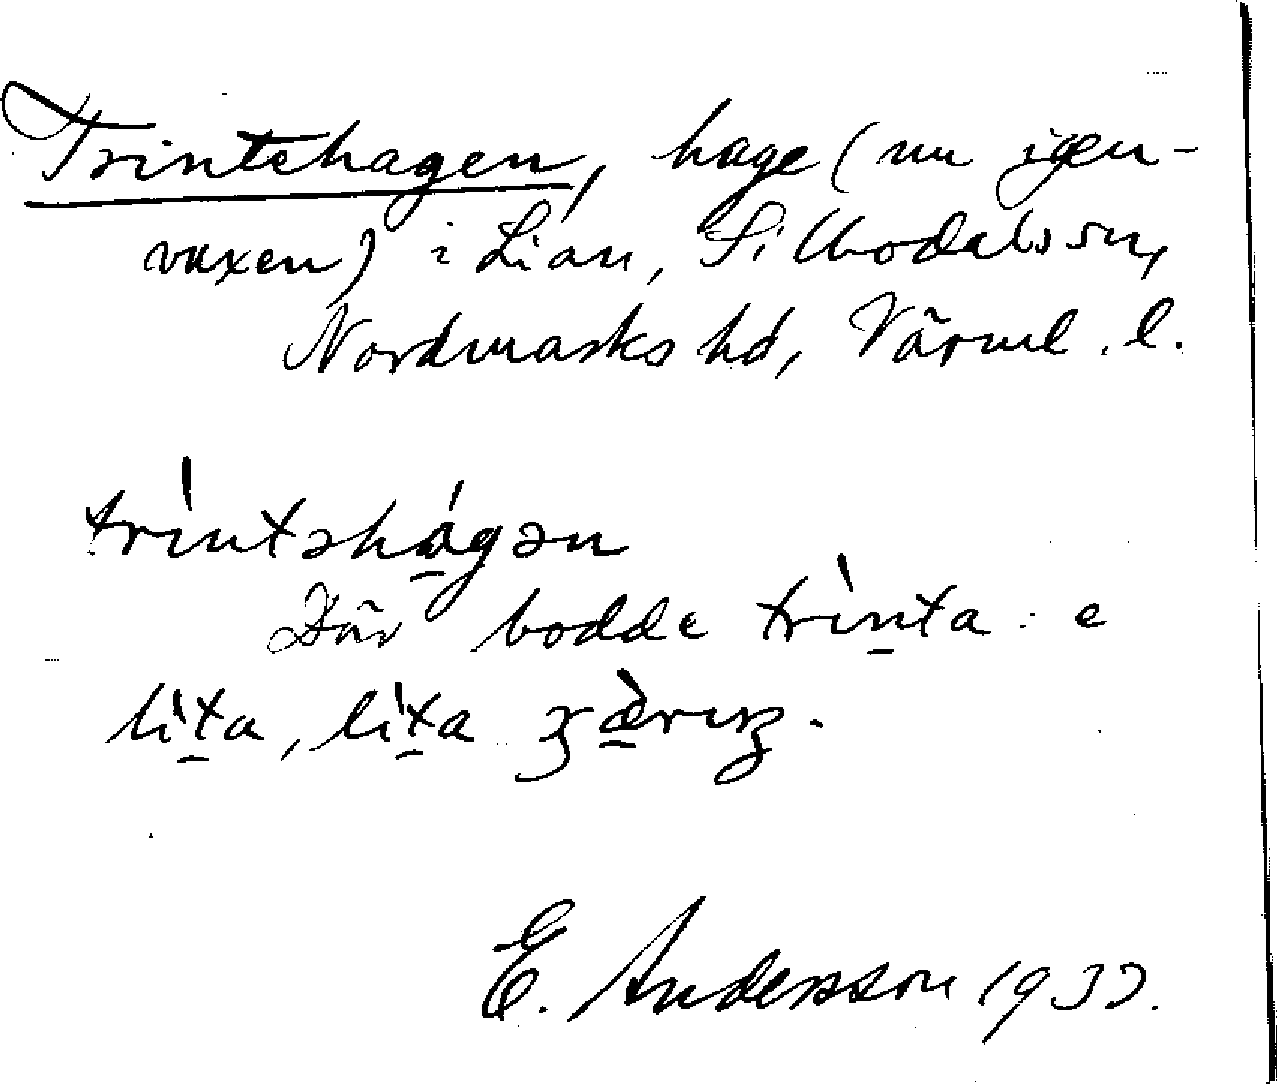 Trintehagen, hage (nu igen-
vuxen) i Lian, Sillbodals sn,
Nordmarks hd, Värml. l.
trìntəhágən
Där bodde trìnta: e
lìta, lìta
E. Andersson 1933.